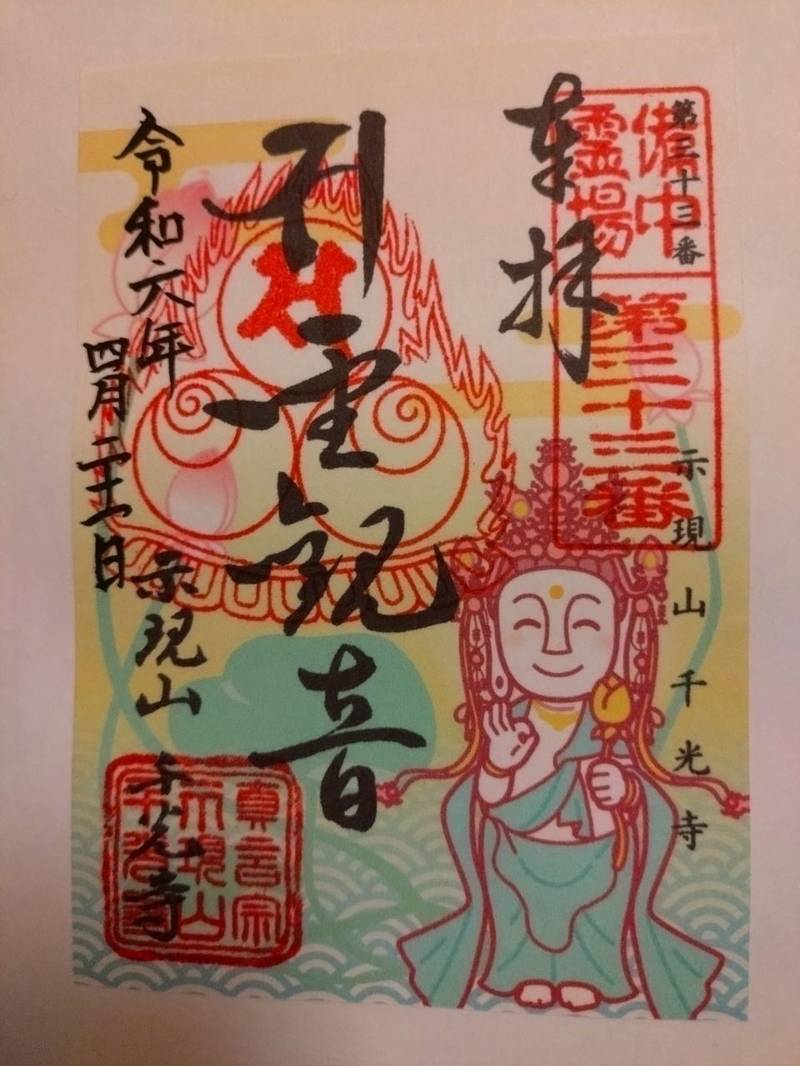 第三十三番
示現山千光寺
備中
霊場
第三十三番
奉拝
聖観音
令和六年
四月二十一日
示現山 千光寺
真言宗
示現山
千光寺